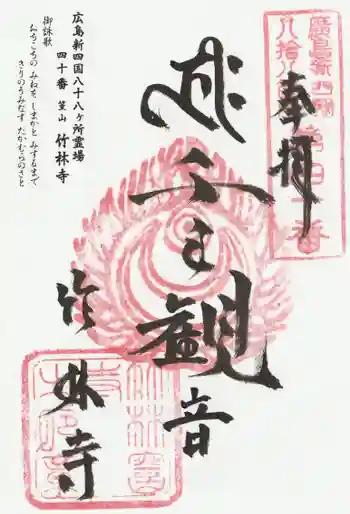 廣島新四國
八拾八ヶ所第四十番
奉拝
千手観音
竹林寺
広島新四国八十八ヶ所霊場
四十番 篁山 竹林寺
御詠歌
おちこちの みねを しまかと みするまで
きりのうみなす たかむらのさと